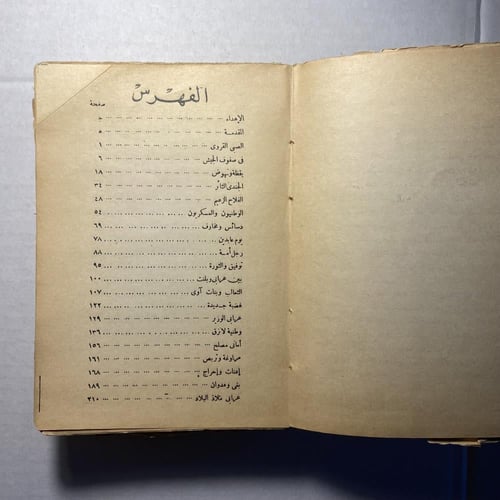 الفهرس
صفحة
الإهداء ... ج
المقدمة ... ه
الصبى القروى ... ١
فى صفوف الجيش ... ٦
يقظة ونهوض ... ١٨
الجندى الثائر ... ٣٤
الفلاح الزعيم ... ٤٨
الوطنيون والعسكريون ... ٥٤
دسائس ومخاوف ... ٦٩
يوم عابدين ... ٧٨
رجل أمة ... ٨٨
توفيق والثورة ... ٩٥
بين عرابى وبلنت ... ١٠٠
الثعالب وبنات آوى ... ١٠٧
غضبة جديدة ... ١٢٢
عرابى الوزير ... ١٢٩
وطنية لا نزق ... ١٣٦
أمانى مصلح ... ١٥٦
مراوغة وتربص ... ١٦١
إعنات وإحراج ... ١٦٨
بغى وعدوان ... ١٨٩
عرابى ملاذ البلاد ... ٢١٠